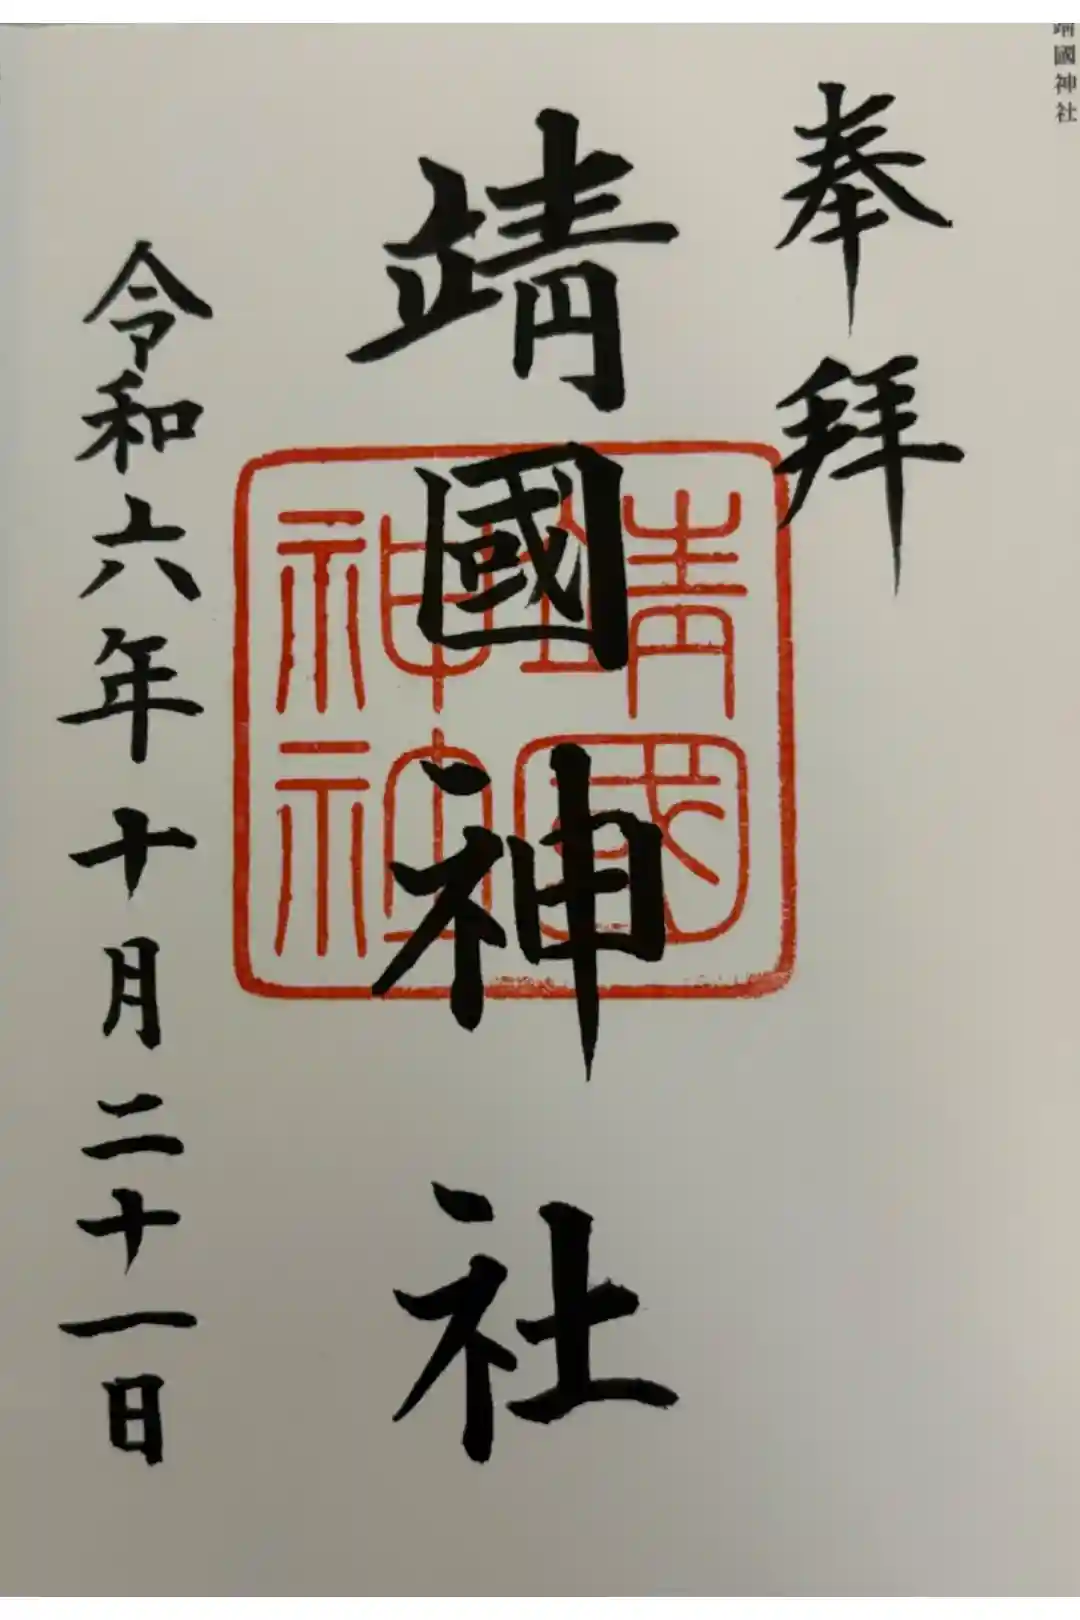 靖國神社
奉拝
靖國神社
靖國神社
令和六年十月二十一日